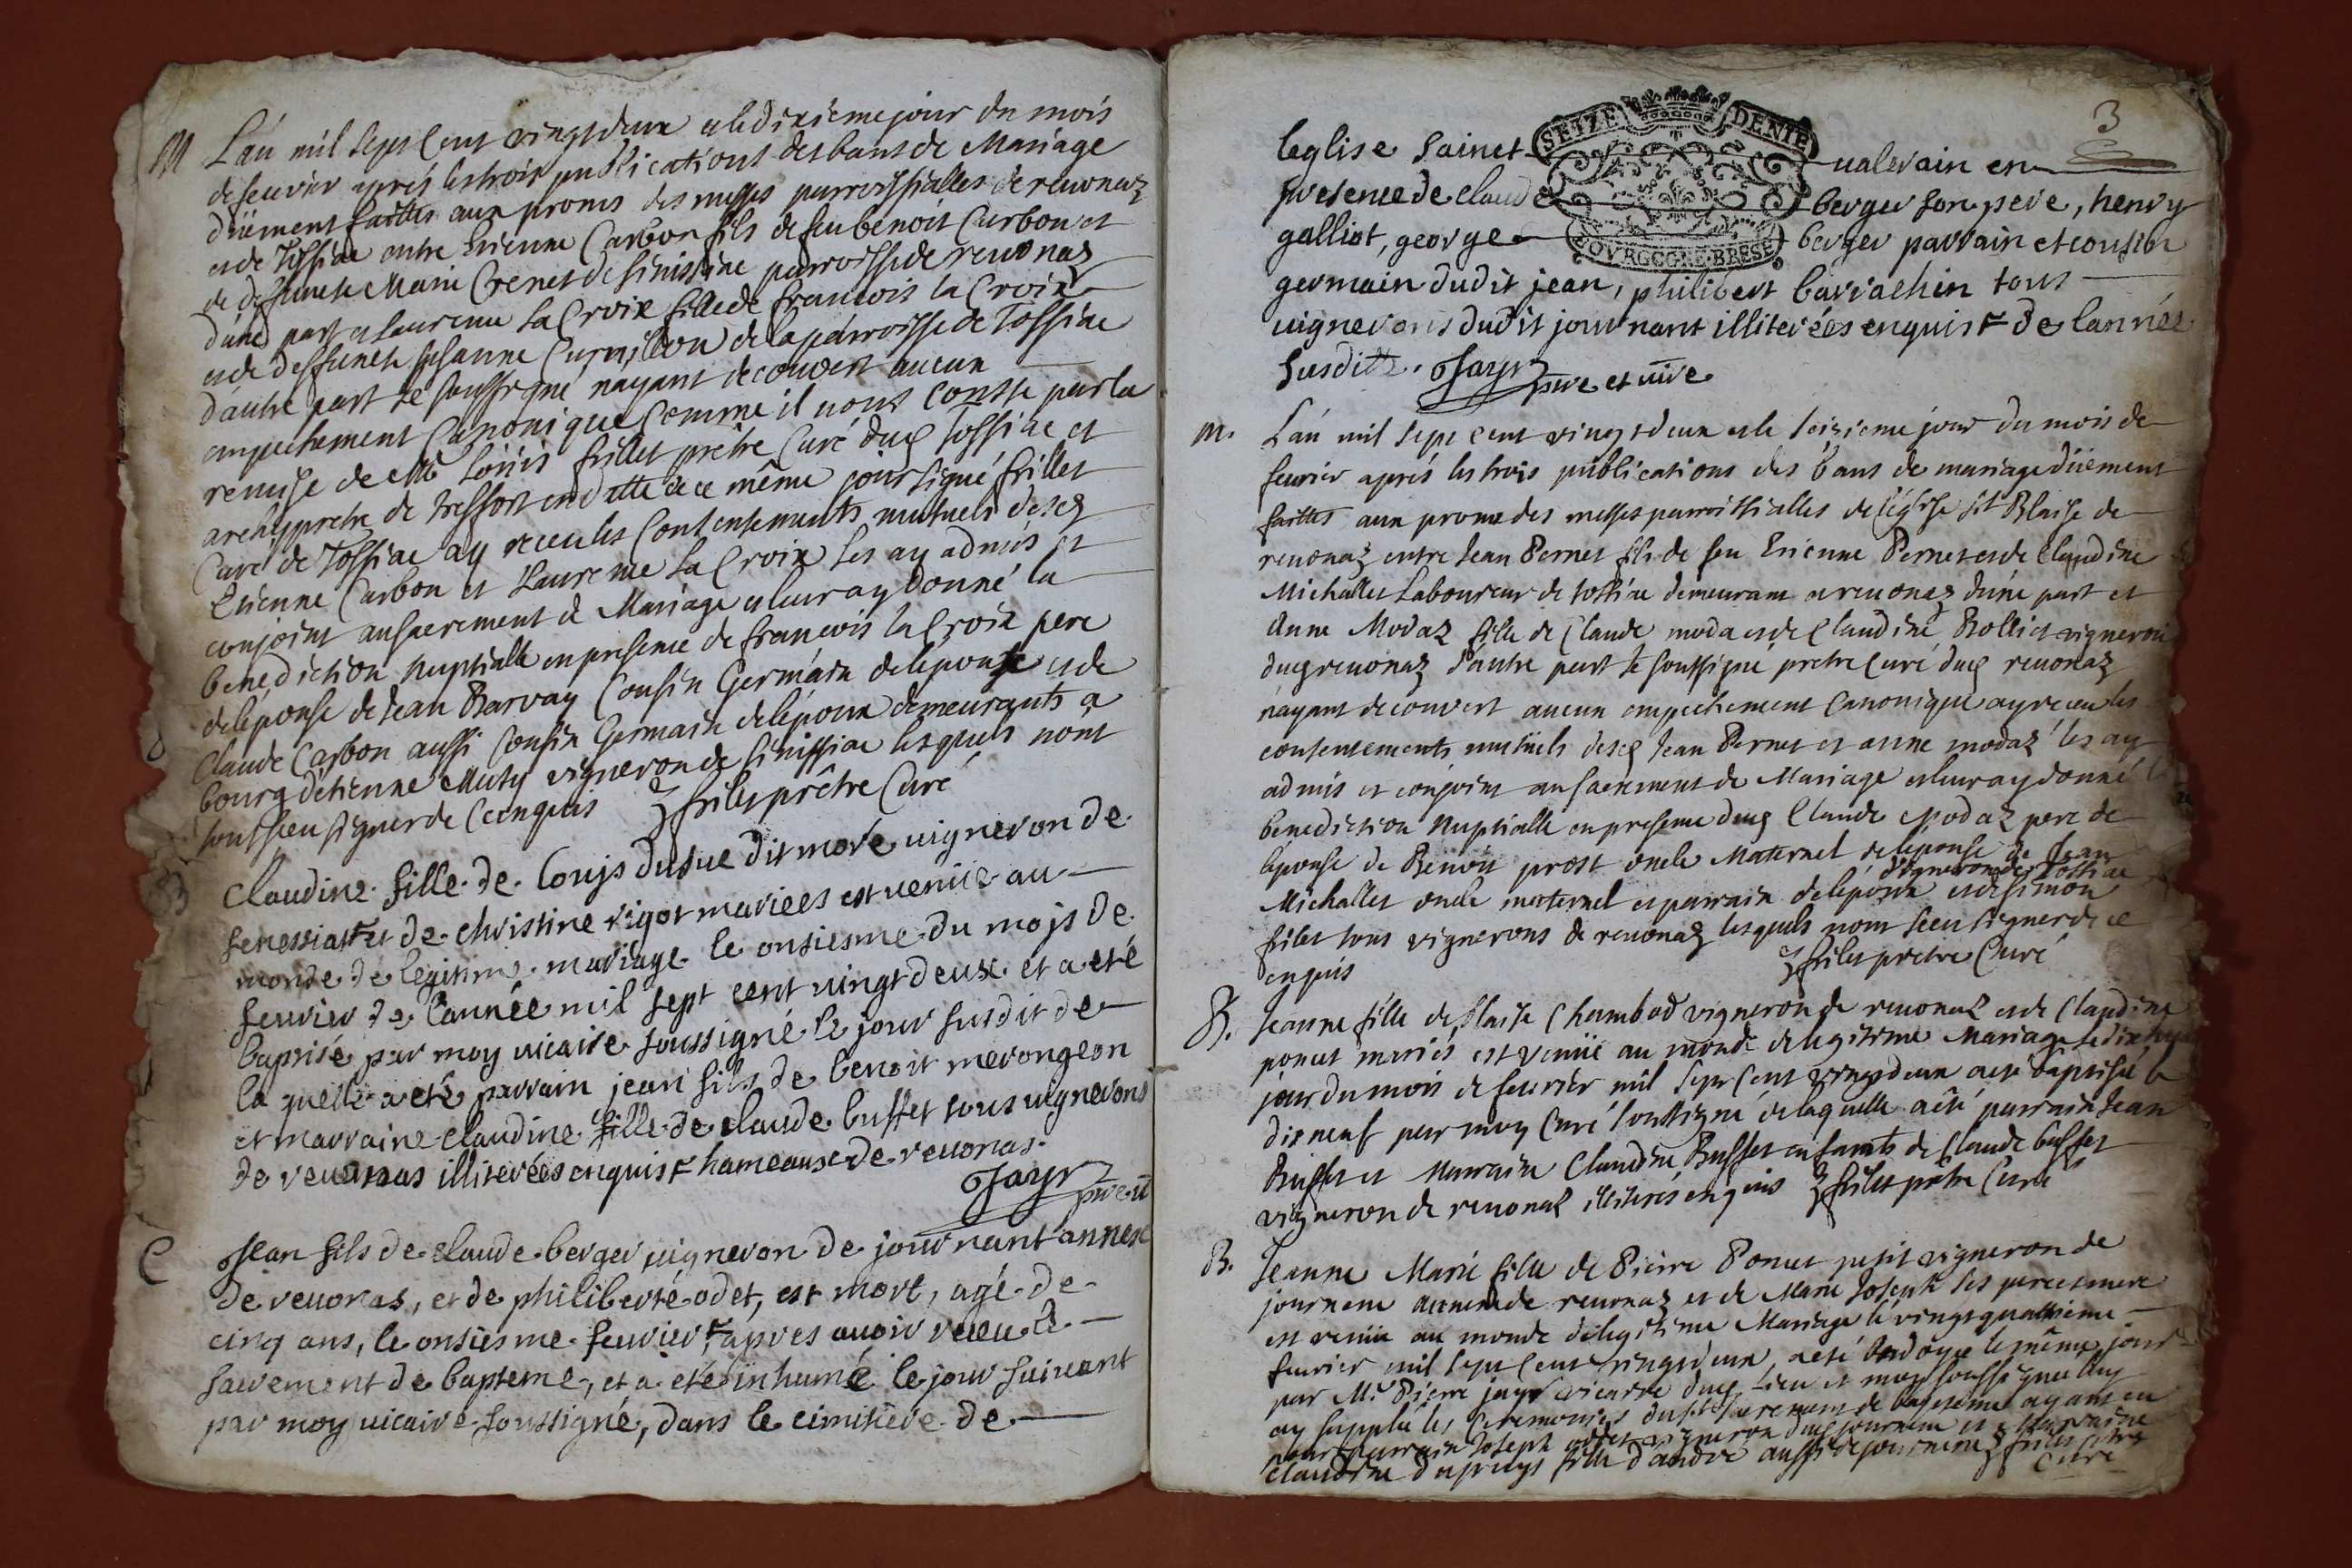 M L'an mil sept cent vingt deux et le dixieme jour du mois
de feuvier aprés les trois publications des bans de Mariage
düement faittes aux prones des messes parroissialles de reuonaz
et de Tossiac entre Etienne Carbon fils de feu benoit Carbon et
de deffuncte Marie Crenet de sinissiac parroisse de reuonaz
d'une part et laurence la Croix fille de francois la Croix
et de deffuncte susanne Curnillon de la parroisse de Tossiac
d'autre part le soussigné nayant decouvert aucun
empechement Canonique Comme il nous Conste par la
remise de Mre Loüis frillet prêtre Curé dud Tossiac et
archipretre de tressort en datte de ce même jour signé frillet
Curé de Tossiac ay receu les Consentements mutuels desd
Etienne Carbon et Laurence la Croix les ay admis et
conjoint au sacrement de Mariage et leur ay donné la
benediction nuptialle en presence de francois la Croix pere
de lépouse de Jean Barvay Cousin Germain de lépouse et de
Claude Carbon aussi Cousin Germain de lépoux demeurants a
bourg d'étienne Muty vigneron de sinissiac lesquels n'ont
tous sceu signer de ce enquis frilet prêtre Curé
B Claudine fille de Louis dusue dit moré uigneron de
senessiat et de christine rigot mariees est uenüe au
monde de legitime mariage le onsiesme du mojs de
feurier de l'année mil sept cent uingt deux et a eté
baptisé par moy uicaire soussigné le jour susdit de
la quelle a eté parrain jean fils de benoit merongeon
et marraine claudine fille de claude buffet tous uignerons
de reuonas illiterées enquis hameaux de reuonas.
Jayr pre et ure
C Jean fils de claude berger uigneron de journant annexe
de reuonas, et de philiberte odet, est mort, agé de
cinq ans, le onsiesme feurier, apres auoir receu le
sacrement de bapteme, et a eté inhumé le jour suiuant
par moy uicaire soussigné, dans le cimitiere de
SEIZE DENIE
BOVRGOGNE·BRESSE
3
leglise sainct ualerain en
presence de claude berger son pere, henry
galliot, george berger parrain et cousin
germain dudit jean, philibert barrachin tous
uignerons dudit journant illiterées enquis de lannée
susditte. Jayr pre et uire
m. L'an mil sept cent vingt deux et le seizieme jour du mois de
feurier aprés les trois publications des bans de mariage düement
faittes aux prone des messes parroissialles de l'église st Blaise de
reuonaz entre Jean Pernet fils de feu Etienne Pernet et de Claudine
Michallet Laboureur de tossiac demeurant a reuonaz d'une part et
Anne Modaz fille de Claude moda et de Claudine Rollict vigneron
dud reuonaz d'autre part le soussigné pretre curé dud reuonaz
nayant decouvert aucun empechement Canonique ay receu les
consentements mutüels desd Jean Pernet et anne modaz les ay
admis et conjoint au sacrement de Mariage et leur ay donné
benediction nuptialle en presence dud Claude Modaz pere de
lépouse de Benoit prost oncle Maternel de lépouse de Jean
vigneron de Tossiac
Michallet oncle maternel et parrain de lépoux et de simon
frilet tous vignerons de reuonaz lesquels n'ont sceu signer de ce
enquis frilet pretre Curé
B. Jeanne fille de Blaise Chambod vigneron de reuonaz et de Claudine
poncet mariés est venüe au monde de legitime Mariage le dix huit
jour du mois de feurier mil sept cent vingt deux a eté baptisée le
dix neuf par moy Curé soussigné de laquelle a été parrain Jean
Buffet et Marraine Claudine Buffet enfants de Claude buffet
vigneron de reuonaz illiterés enquis frilet prêtre Curé
B. Jeanne Marie fille de Pierre Poncet petit vigneron de
journenc annexe de reuonaz et de Marie Joseph ses pere et mere
est venüe au monde de legitime Mariage le vingt quatrieme
feurier mil sept cent vingt deux, a eté ondoyée le même jour
par Mr Pierre jayr vicaire dud lieu et moy soussigné luy
ay supplée les Ceremonies du st sacrement de baptesme ayant eu
pour parrain Joseph odet vigneron dud journenc et Marraine
Claudine dupuys fille d'andré aussi de journenc frilet ptre
Curé